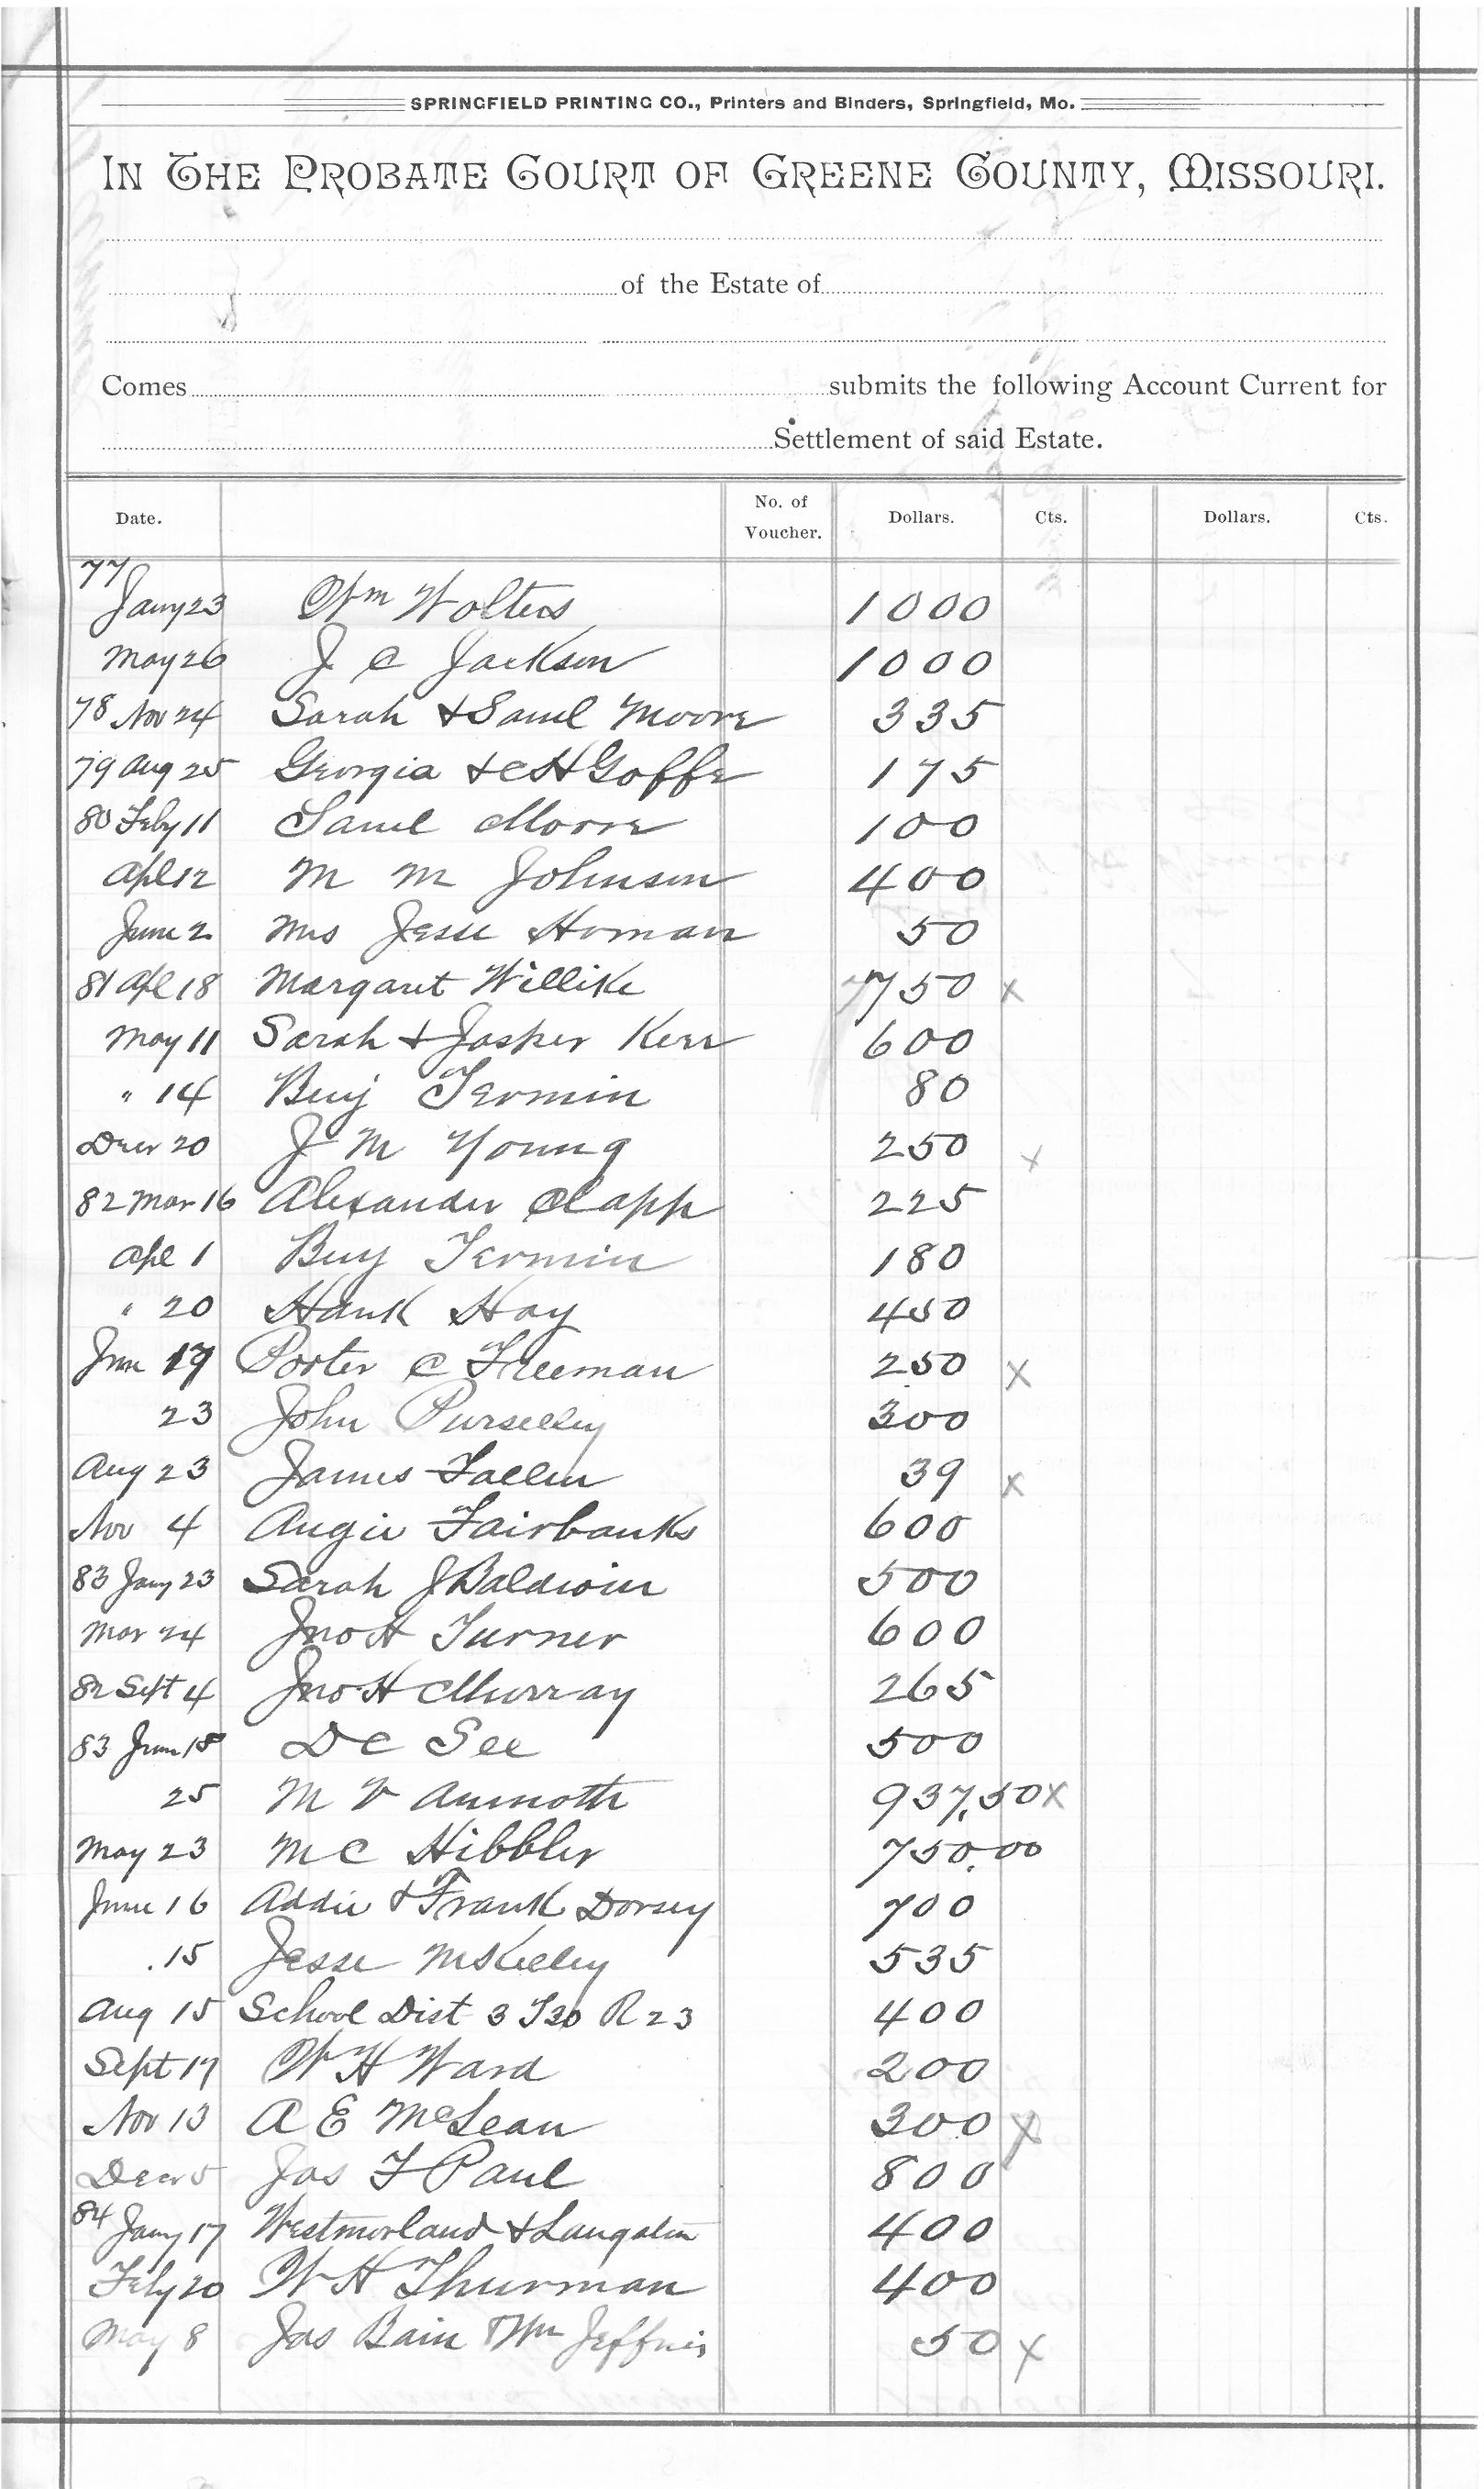 SPRINGFIELD PRINTING CO., Printers and Binders, Springfield, Mo.
IN THE PROBATE COURT OF GREENE COUNTY, MISSOURI.
of the Estate of
Comes submits the following Account Current for
Settlement of said Estate.
Date. No. of Voucher. Dollars. Cts. Dollars. Cts.
77
Jany 23 Wm Wolters 1000
May 26 J C Jackson 1000
78 Nov 24 Sarah & Saml Moore 335
79 Aug 25 Georgia & C H Goffe 175
80 Feby 11 Saml Moore 100
Apl 12 M M Johnson 400
June 2 Mrs Jesse Homan 50
81 Apl 18 Margaret Willike 750 x
May 11 Sarah & Jasper Kerr 600
" 14 Benj Termin 80
Decr 20 J M Young 250 x
82 Mar 16 Alexander Clapp 225
Apl 1 Benj Termin 180
" 20 Hank Hay 450
Jun 19 Porter C Freeman 250 x
23 John Purselley 300
Aug 23 James Fallin 39 x
Nov 4 Angie Fairbanks 600
83 Jany 23 Sarah J Baldwin 500
Mar 24 Jno H Turner 600
82 Sept 4 Jno H Murray 265
83 June 18 D C See 500
25 M V 937,50 x
May 23 M C Hibbler 750.00
June 16 Addie & Frank Dorsey 700
.15 Jesse McKelley 535
Aug 15 School Dist 3 T30 R 23 400
Sept 17 W H Ward 200
Nov 13 A E McLean 300 x
Decr 5 Jas F Paul 800
84 Jany 17 Westmorland & Langston 400
Feby 20 W H Thurman 400
May 8 Jas Bain & Wm Jeffries 50 x